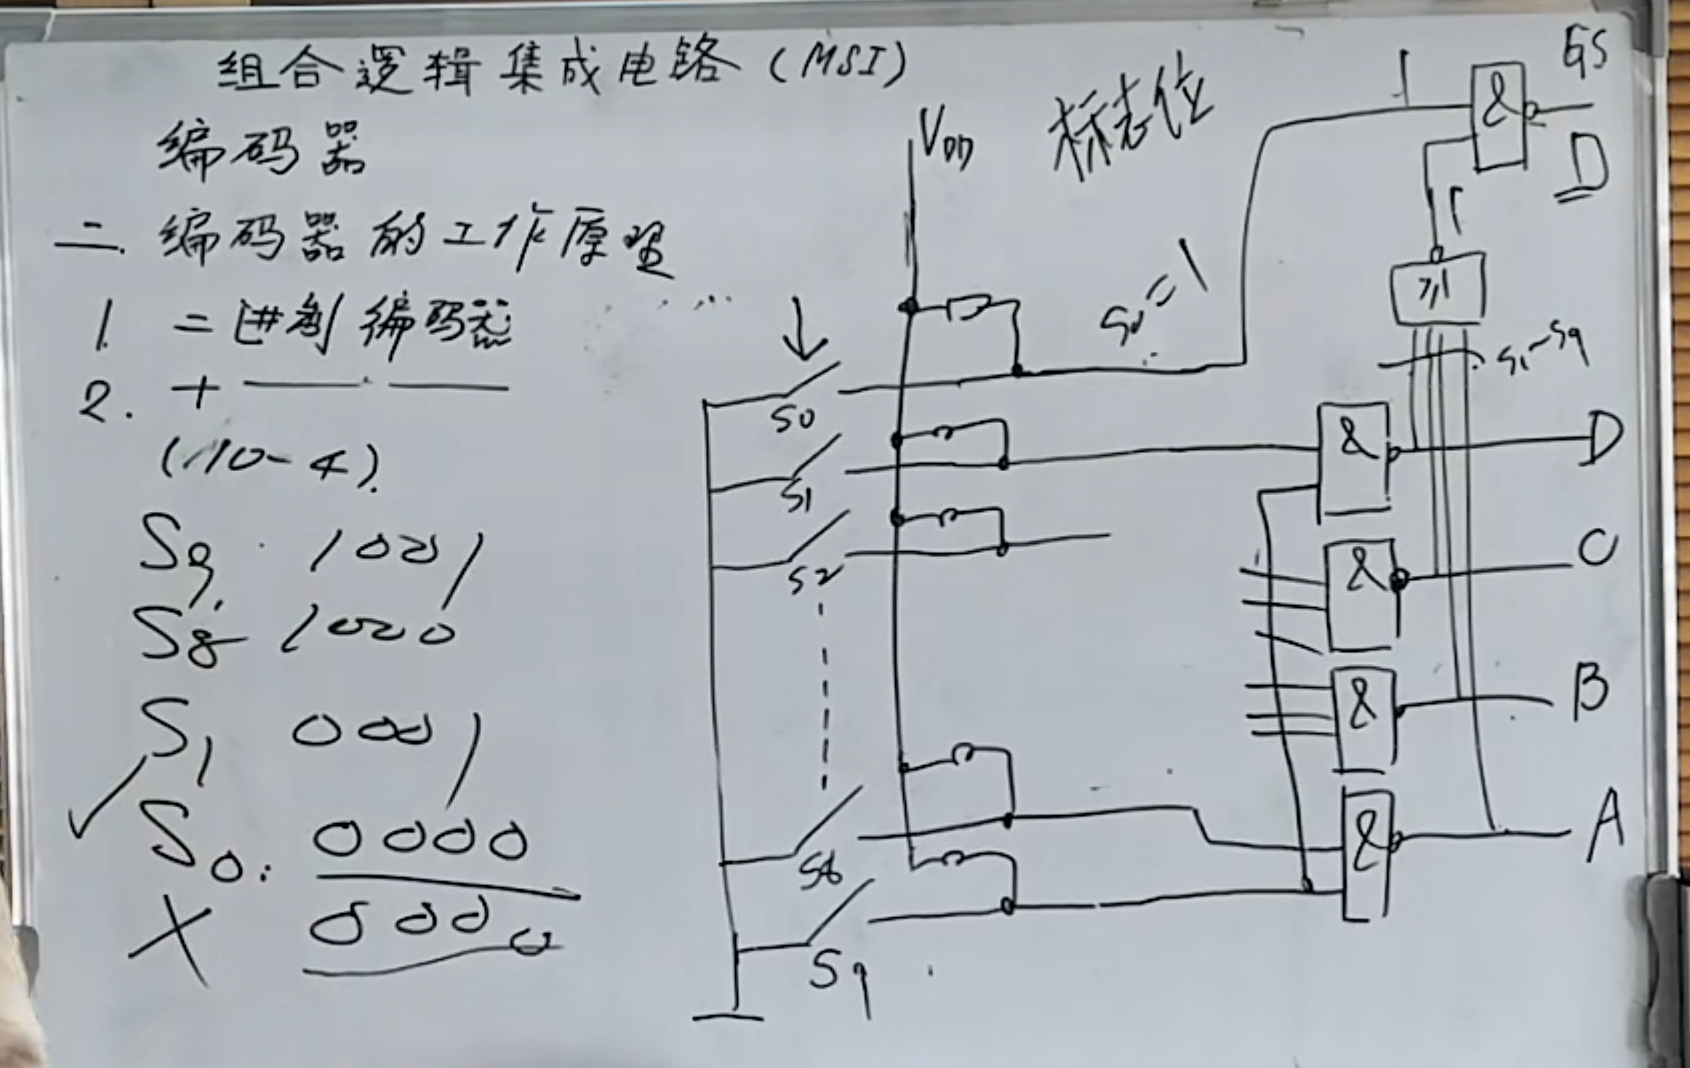 组合逻辑集成电路(MSI)
编码器
二.编码器的工作原理
1 二进制编码器
2. 十 — —
(10-4).
S9 1001
S8 1000
S1 0001
✓ S0: 0000
X 0000
VDD
标志位
S0=1
S0
S1
S2
S8
S9
1
&
GS
D
1
≥1
S1-S9
&
D
&
C
&
B
&
A